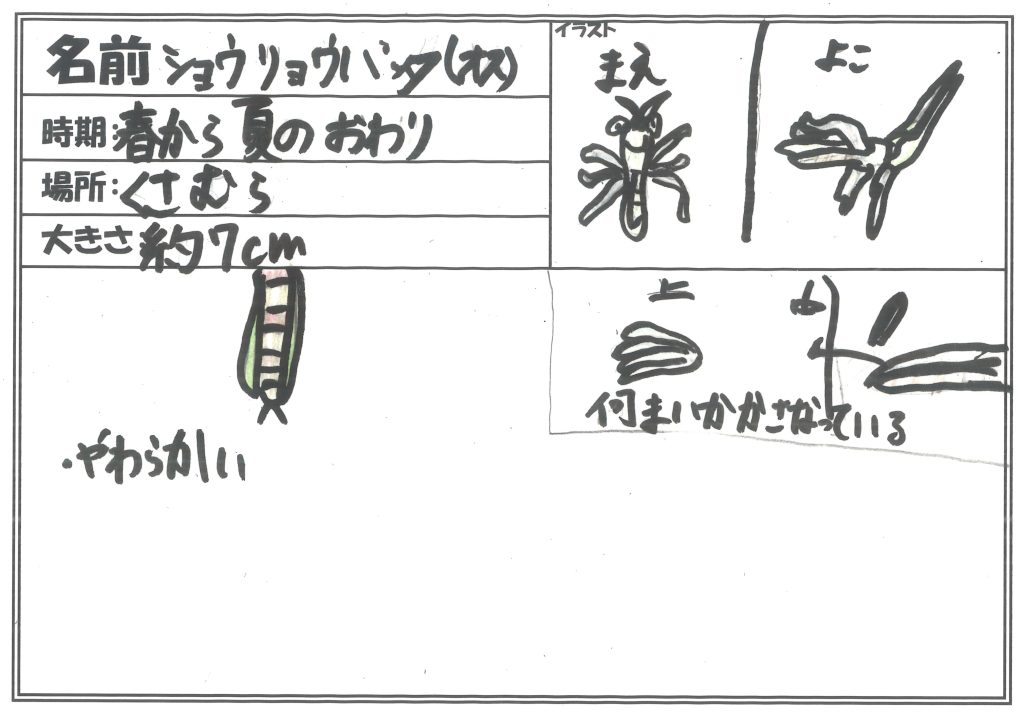 名前 ショウリョウバッタ(オス)
時期:春から夏のおわり
場所:くさむら
大きさ 約7cm
イラスト
まえ
よこ
上
中
何まいかかさなっている
・やわらかい